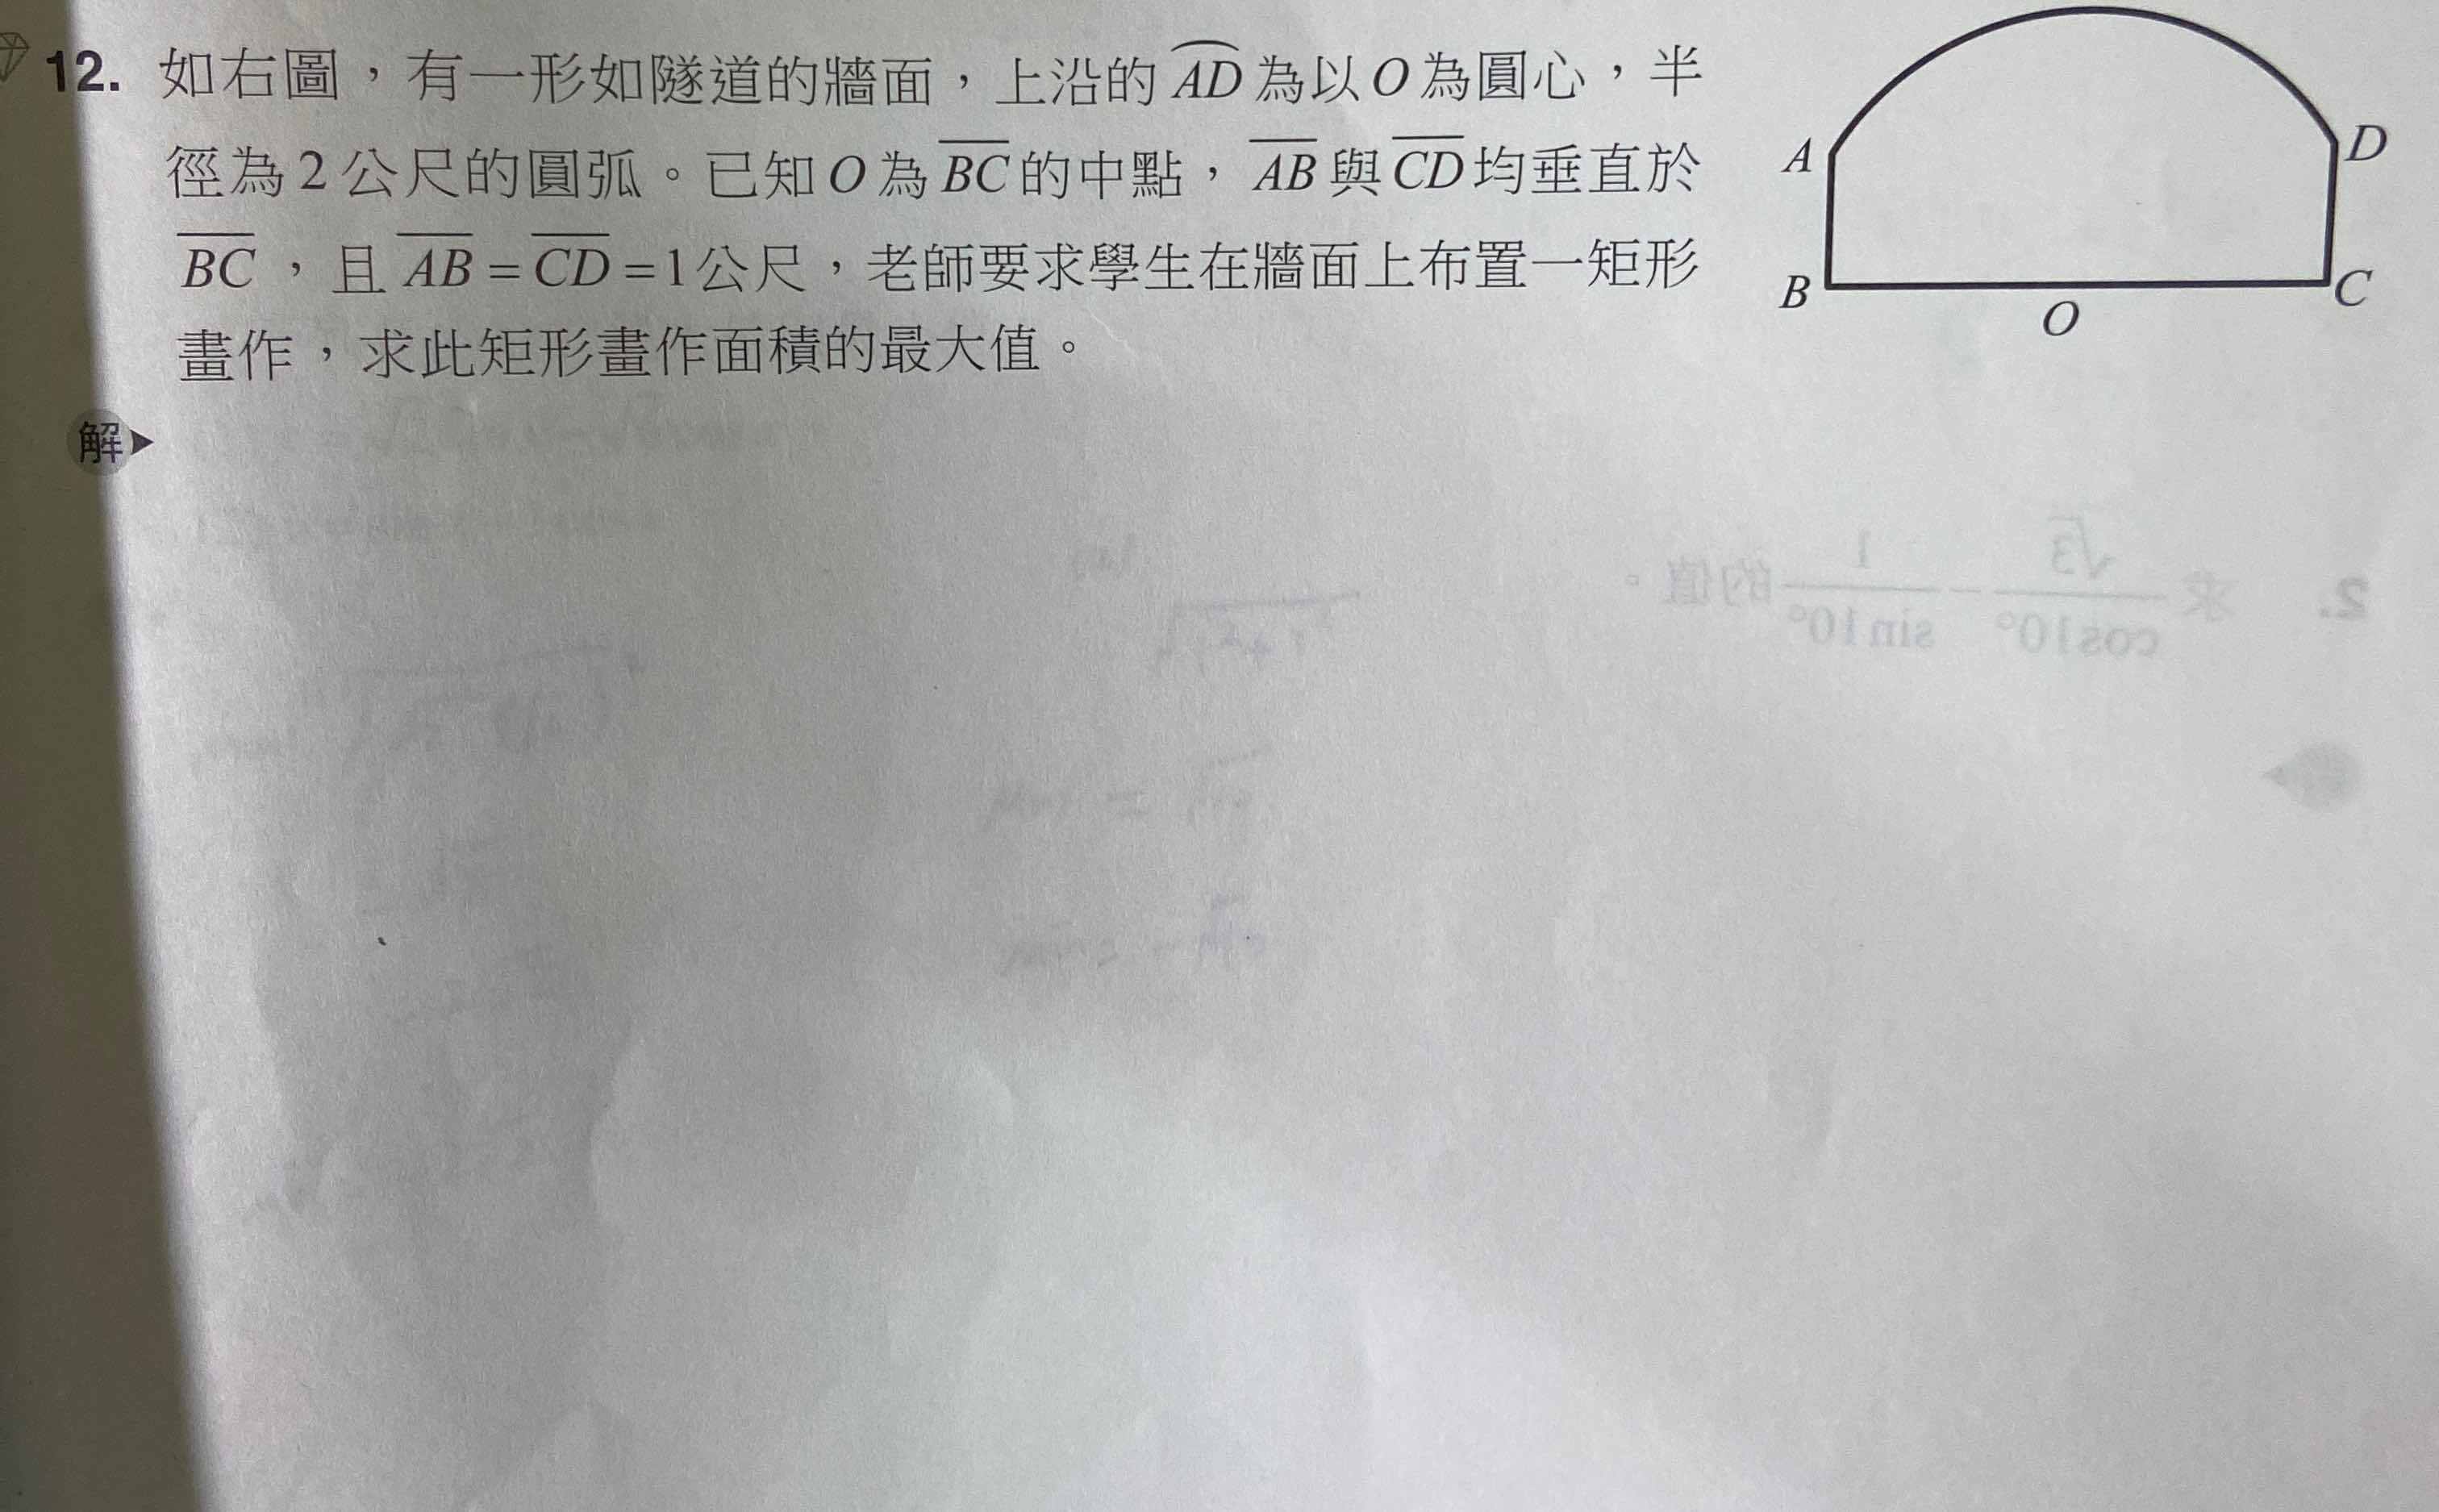 12. 如右圖，有一形如隧道的牆面，上沿的 AD 為以 O 為圓心，半
徑為 2 公尺的圓弧。已知 O 為 BC 的中點，AB 與 CD 均垂直於
BC，且 AB = CD = 1 公尺，老師要求學生在牆面上布置一矩形
畫作，求此矩形畫作面積的最大值。
A
D
B
O
C
解
2. 求 √3/cos10° − 1/sin10° 的值。